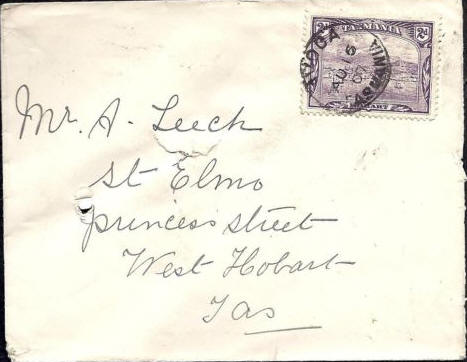 TASMANIA
2d 2d
AU 16
07
TASMANIA
HOBART
Mr. A. Leech
St Elmo
princess street
West Hobart
Tas